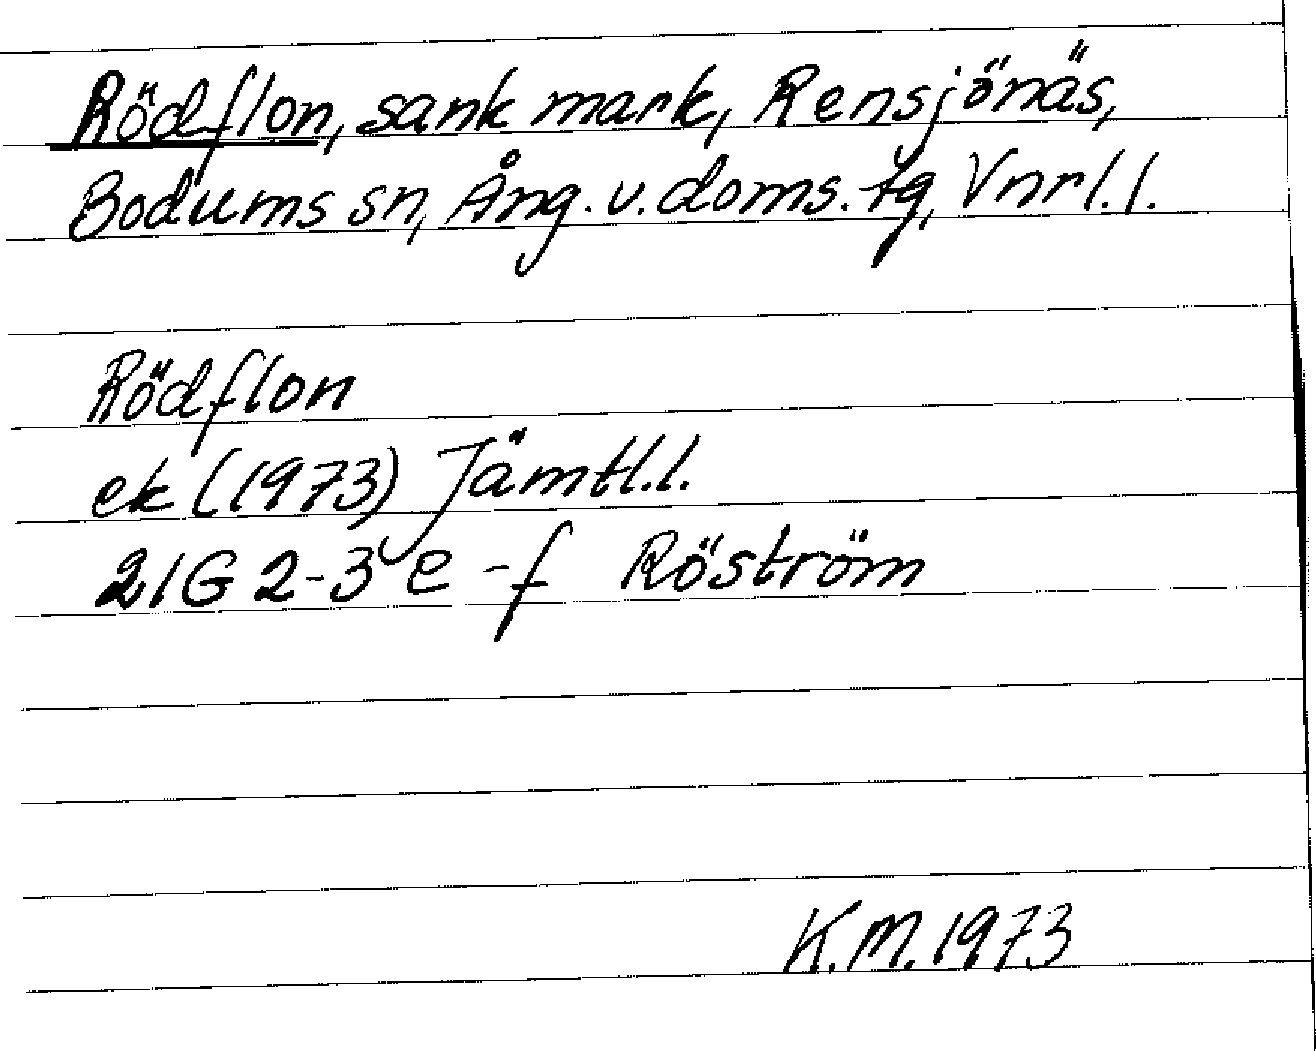 Rödflon, sank mark, Rensjönäs,
Bodums sn, Ång. v. doms. tg, Vnrl. l.
Rödflon
ek (1973) Jämtl. l.
21G 2-3 e-f Röström
K.M. 1973